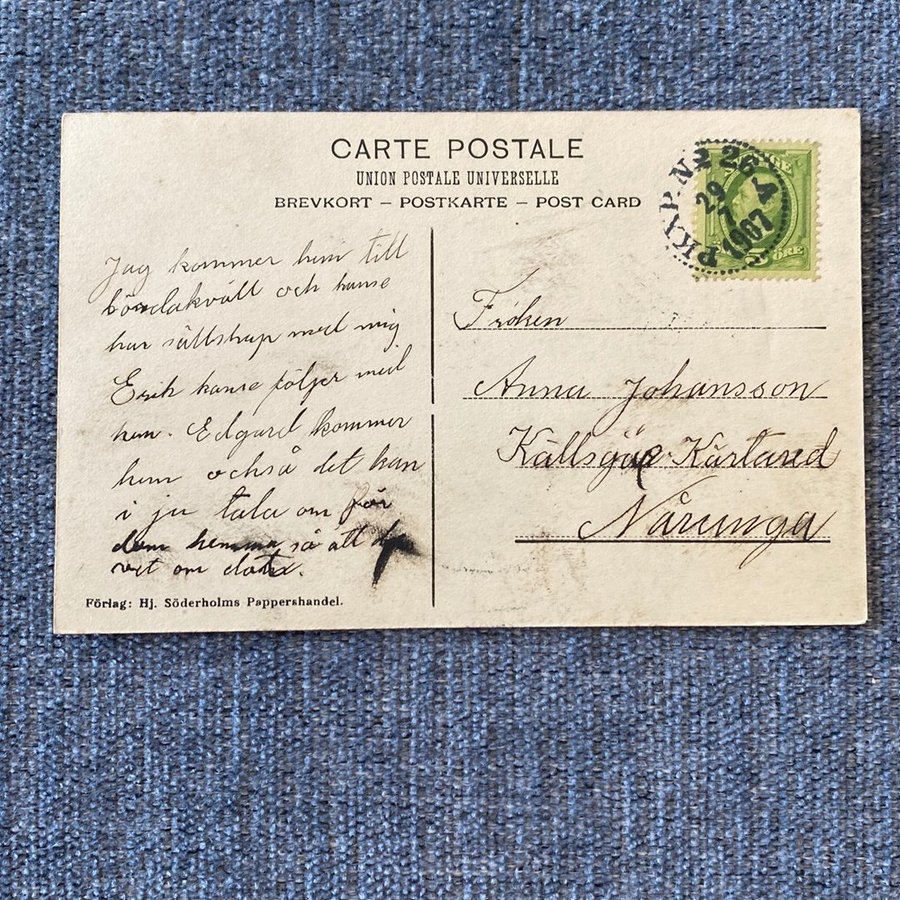 CARTE POSTALE
UNION POSTALE UNIVERSELLE
BREVKORT – POSTKARTE – POST CARD
PKXP. Nr 26 A
29
7
1907
5 ÖRE
Jag kommer hem till
löndakväll och kanse
har sällskap med mig
Erik kanse följer med
hem. Edgard kommer
hem också det kan
i ju tala om för
dem hemma så att de
vet om detta.
Fröken
Anna Johansson
Kärtared
Nårunga
Förlag: Hj. Söderholms Pappershandel.